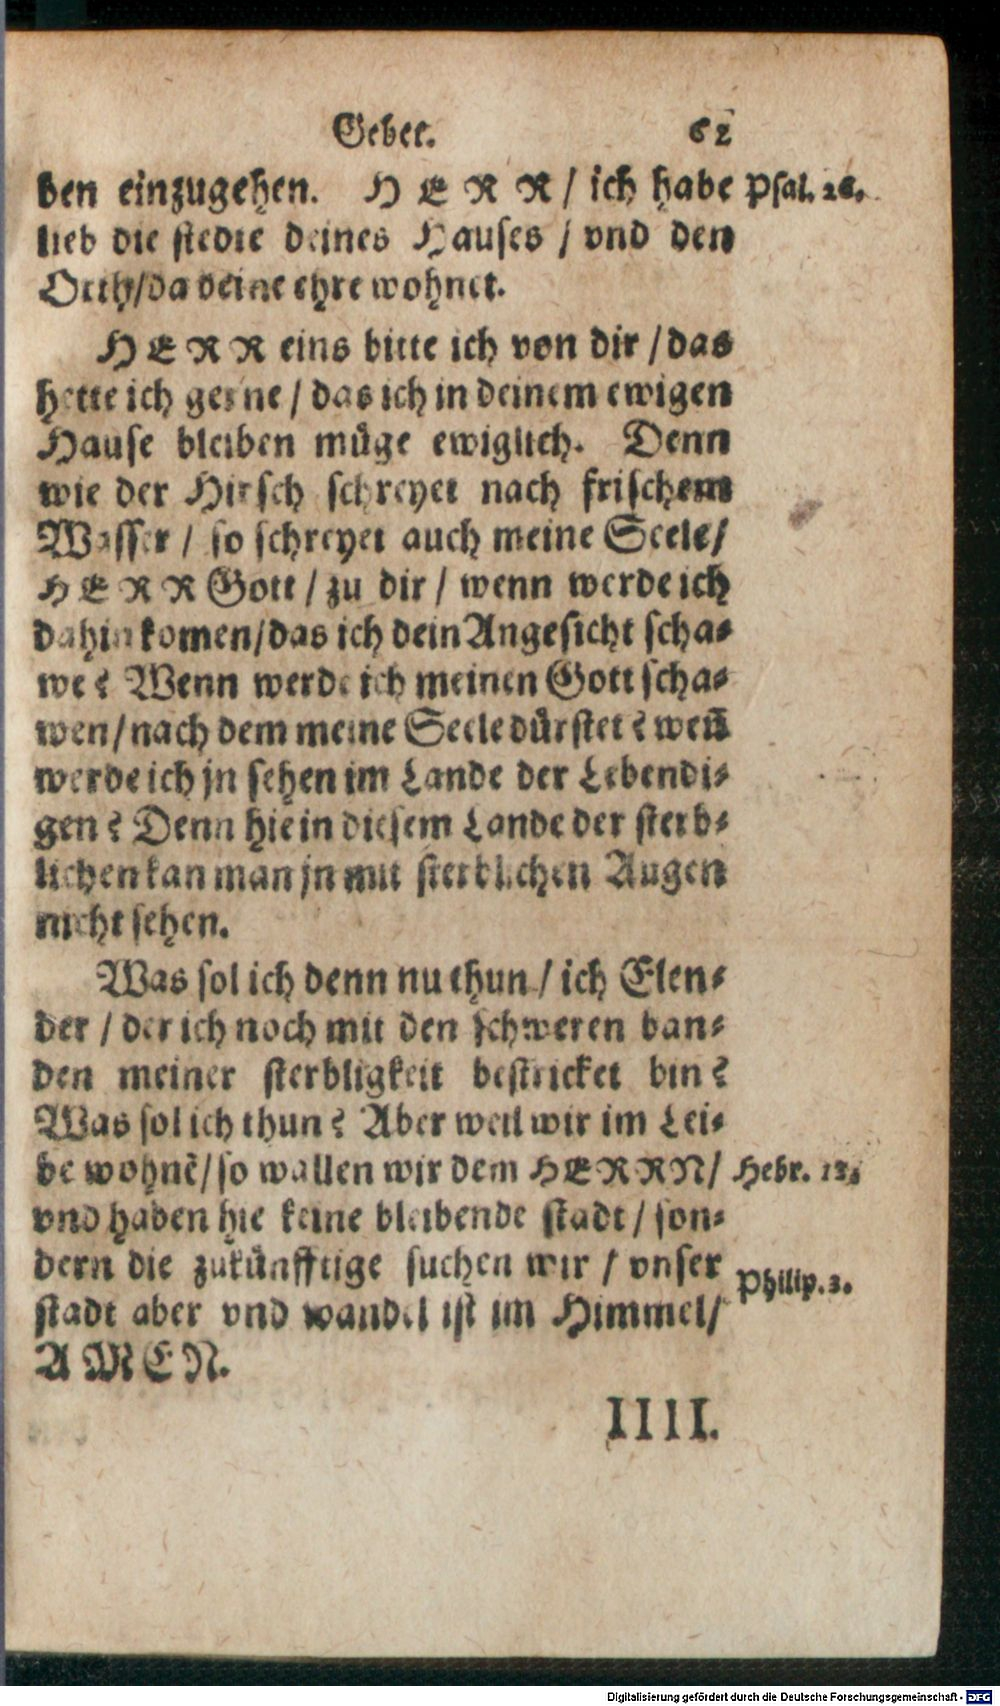 Gebet. 62
ben einzugehen. HERR / ich habe Psal. 26.
lieb die stedte deines Hauses / vnd den
Orth/da deine ehre wohnet.
HERR eins bitte ich von dir / das
hette ich gerne / das ich in deinem ewigen
Hause bleiben müge ewiglich. Denn
wie der Hirsch schreyet nach frischem
Wasser / so schreyet auch meine Seele/
HERR Gott / zu dir / wenn werde ich
dahin komen/das ich dein Angesicht scha-
we? Wenn werde ich meinen Gott scha-
wen/nach dem meine Seele dürstet? weñ
werde ich jn sehen im Lande der Lebendi-
gen? Denn hie in diesem Lande der sterb-
lichen kan man jn mit sterblichen Augen
nicht sehen.
Was sol ich denn nu thun / ich Elen-
der / der ich noch mit den schweren ban-
den meiner sterbligkeit bestricket bin?
Was sol ich thun? Aber weil wir im Lei-
be wohnẽ/so wallen wir dem HERRN/ Hebr. 13.
vnd haben hie keine bleibende stadt / son-
dern die zukünfftige suchen wir / vnser
stadt aber vnd wandel ist im Himmel/ Philip. 3.
AMEN.
IIII.
Digitalisierung gefördert durch die Deutsche Forschungsgemeinschaft - DFG